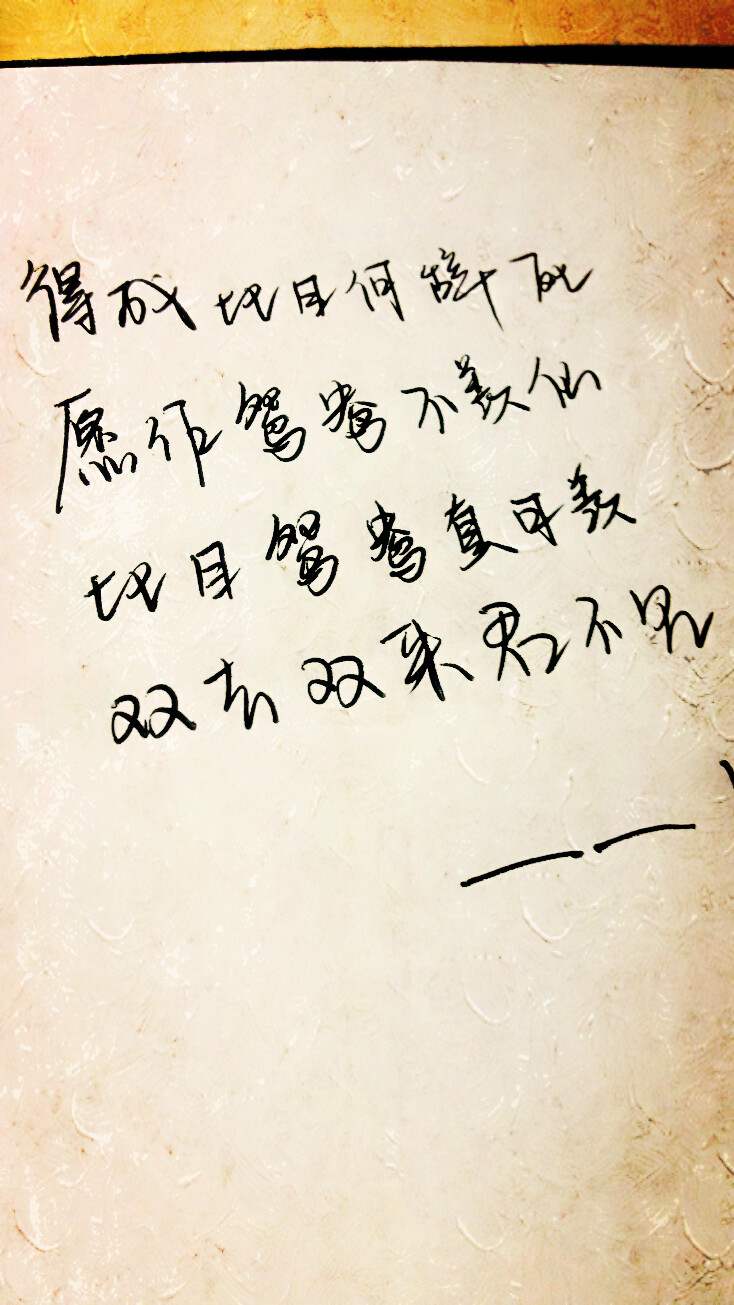 得成比目何辞死
愿作鸳鸯不羡仙
比目鸳鸯真可羡
双去双来君不见
——